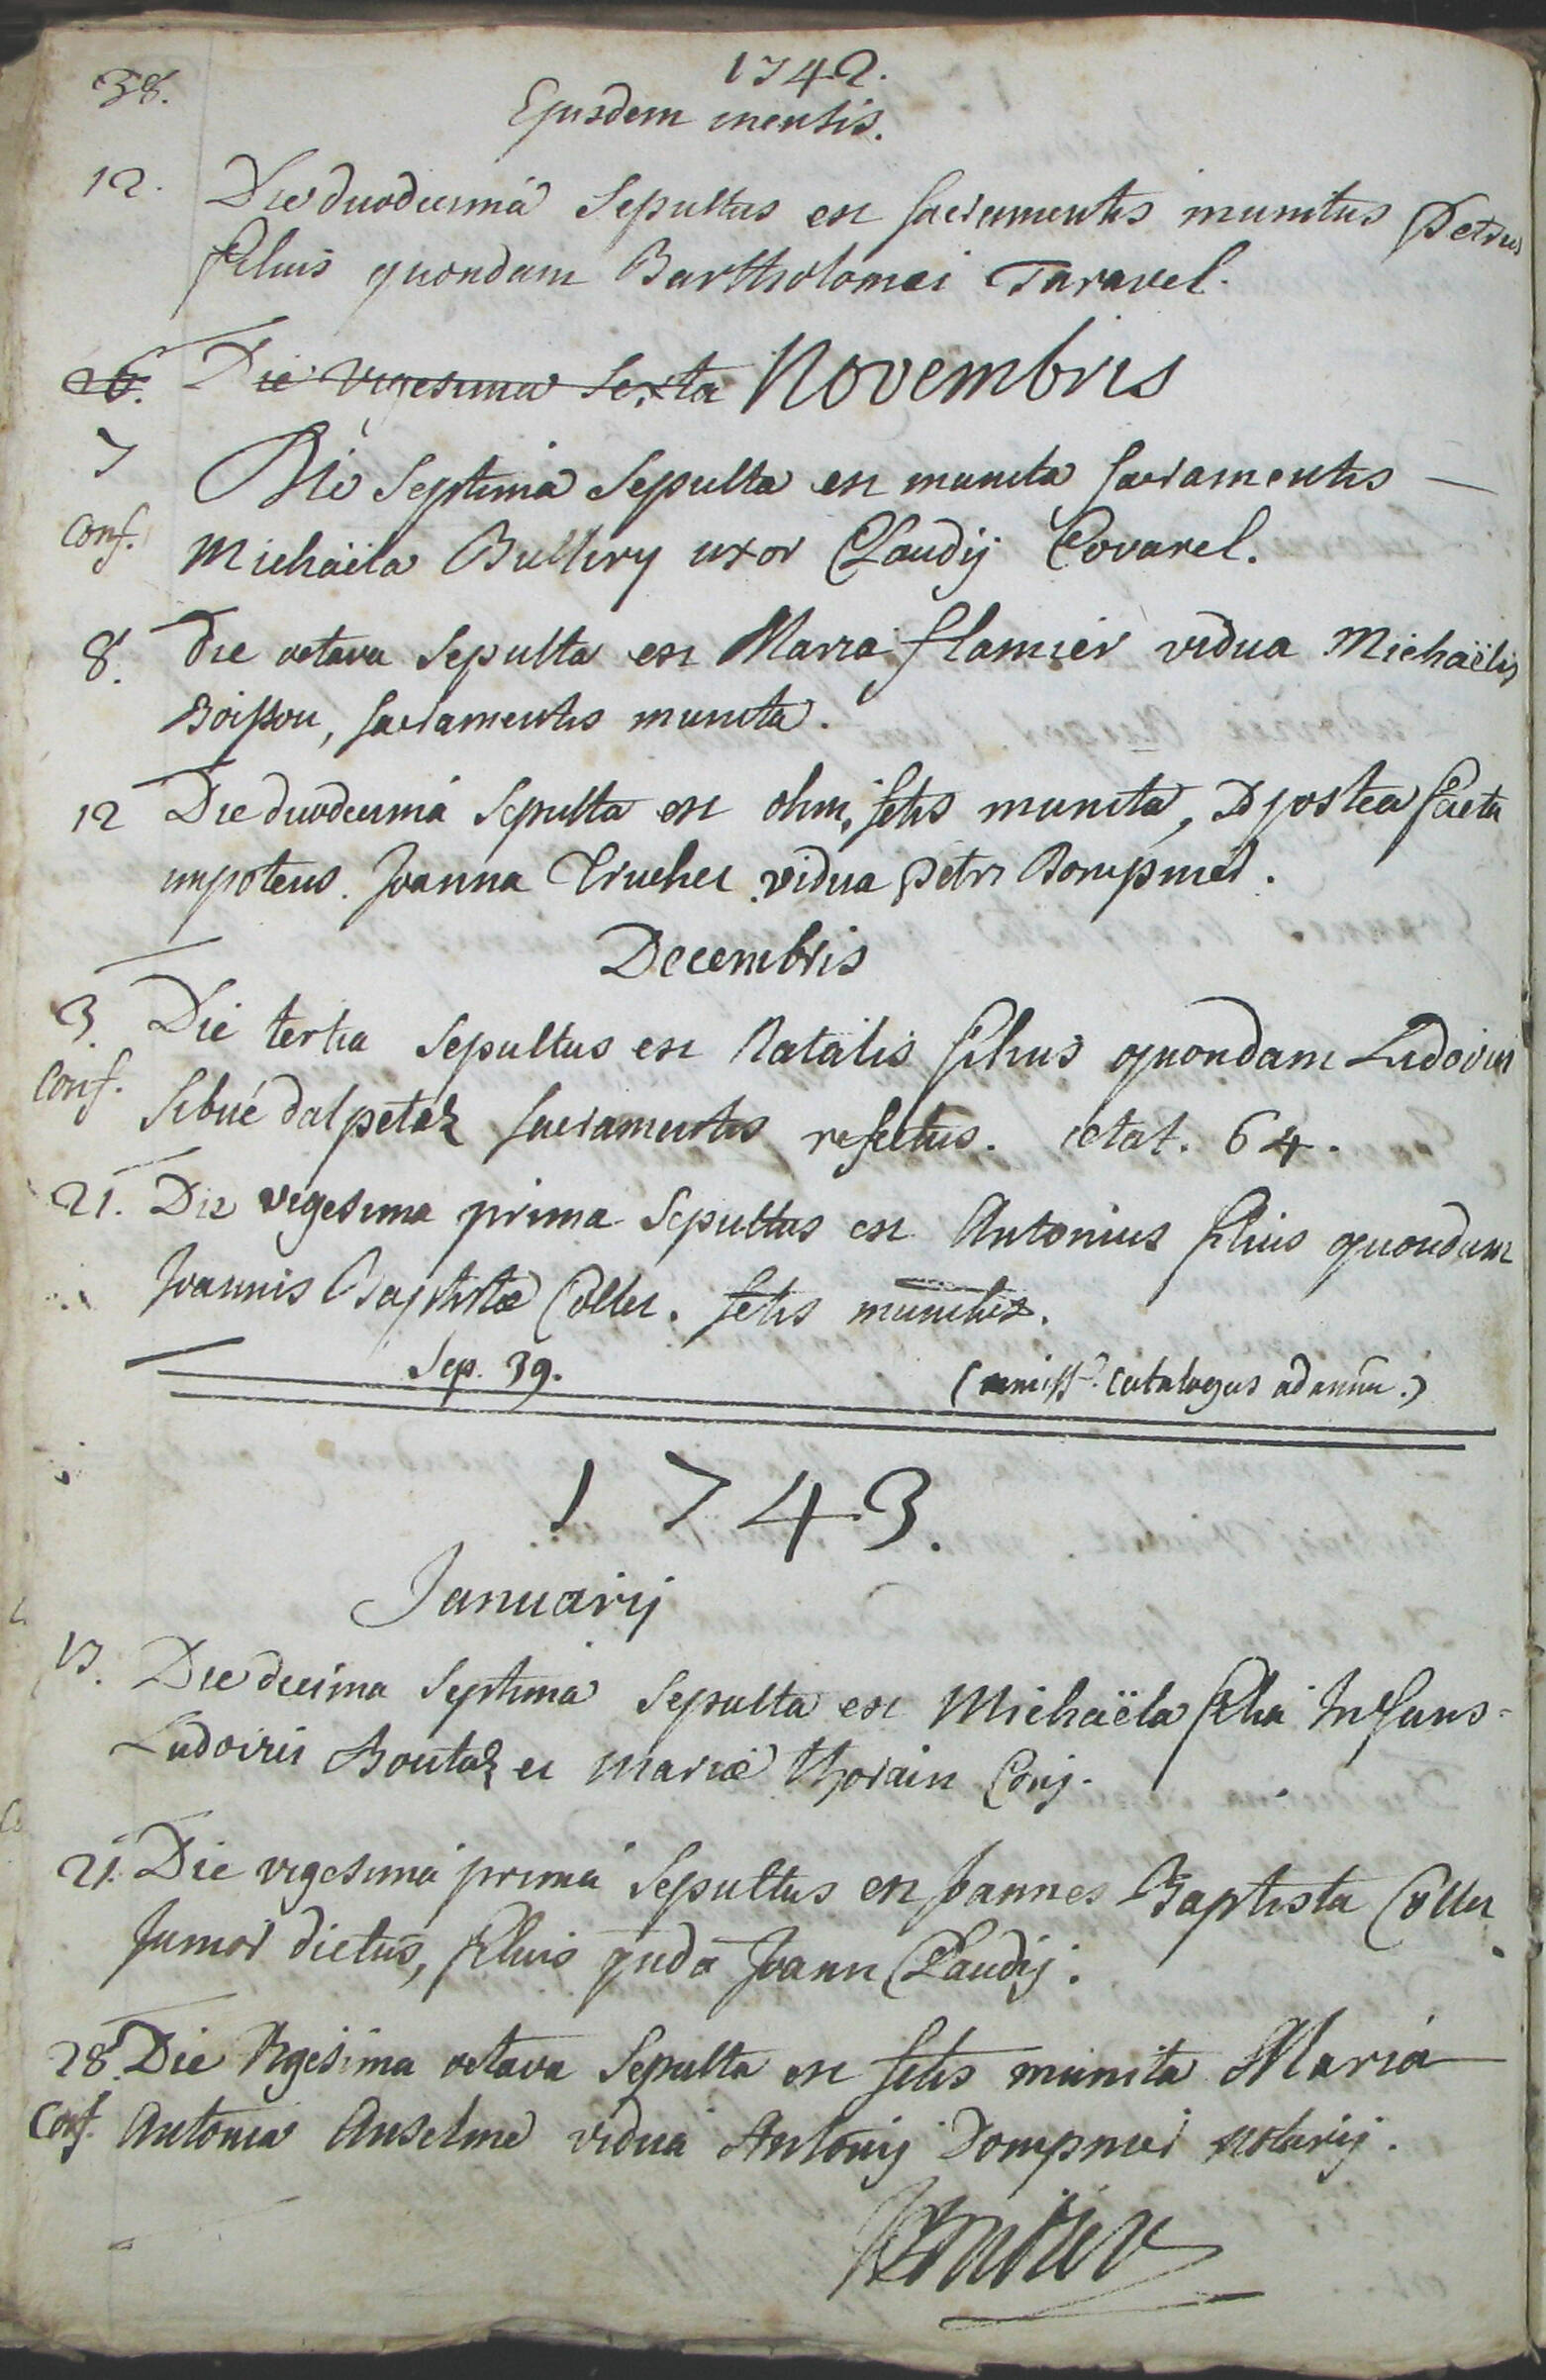 38.
1742.
Ejusdem mensis.
12. Die duodecimâ Sepultus est sacramentis munitus Petrus
filius quondam Bartholomæi Taravel.
26. Die vigesima sexta Novembris
7 Die Septimâ Sepulta est munita sacramentis —
Conf. Michaëla Bulliery uxor Claudij Covarel.
8. Die octava Sepulta est Maria flamier vidua Michaëlis
Boisson, sacramentis munita.
12 Die duodecimâ Sepulta est olim, sctis munita, & postea facta
impotens. Joanna Truchet vidua Petri Dompmet.
Decembris
3. Die tertia Sepultus est Natalis filius quondam Ludovici
Conf. Sibué dalpetaz sacramentis refectus. ætat. 64.
21. Die vigesima prima Sepultus est Antonius filius quondam
Joannis Baptistæ Collet. sctis munitus.
Sep. 39. ( catalogus ad annu.)
1743.
Januarij
17. Die decima Septima Sepulta est Michaëla filia Infans=
Ludovici Boutaz et Mariæ thorain Conj.
21. Die vigesimâ primâ Sepultus est Joannes Baptista Collet
Junior dictus, filius qudā Joann Claudij.
28. Die Vigesima octava Sepulta est sctis munita Maria
Conf. Antonia Anselme vidua Antonij Dompmet notarij.